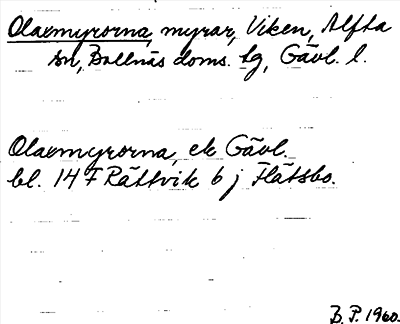 Olaemyrorna, myrar, Viken, Alfta
sn, Bollnäs doms. lg, Gävl. l.
Olaemyrorna, ek Gävl.
bl. 14 F Rättvik 6 j Flätsbo.
B. P. 1960.